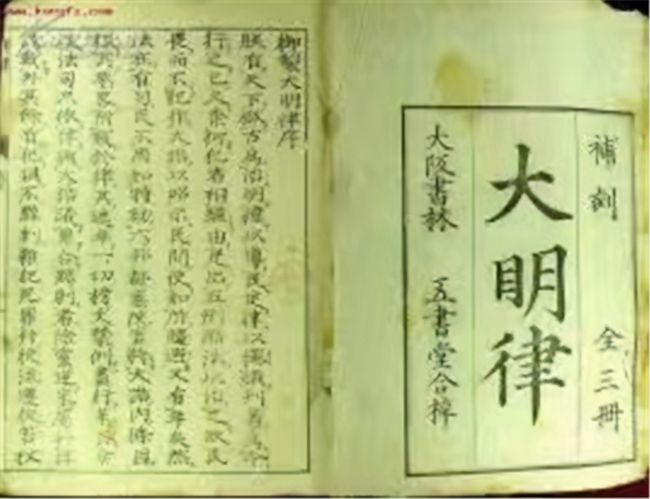 www.kongfz.com
補刻 全三冊
大明律
大阪書林 五書堂合梓
御製大明律序
朕有天下倣古為治明禮以導民定律以繩頑刊著為令
行之已久奈何犯者相繼由是出五刑酷法以治之欲民
畏而不犯作大誥以昭示民間使知所趨避又有年矣然
法在有司民不周知特勅六部都察院官將大誥內條目
撮其要畧附載於律其遞年一切榜文禁例盡行革去今
後法司只依律與大誥議罪合黥刺者除黨逆家屬并律
該載外其餘有犯俱不黥刺雜犯死罪并徒流遷徙笞杖